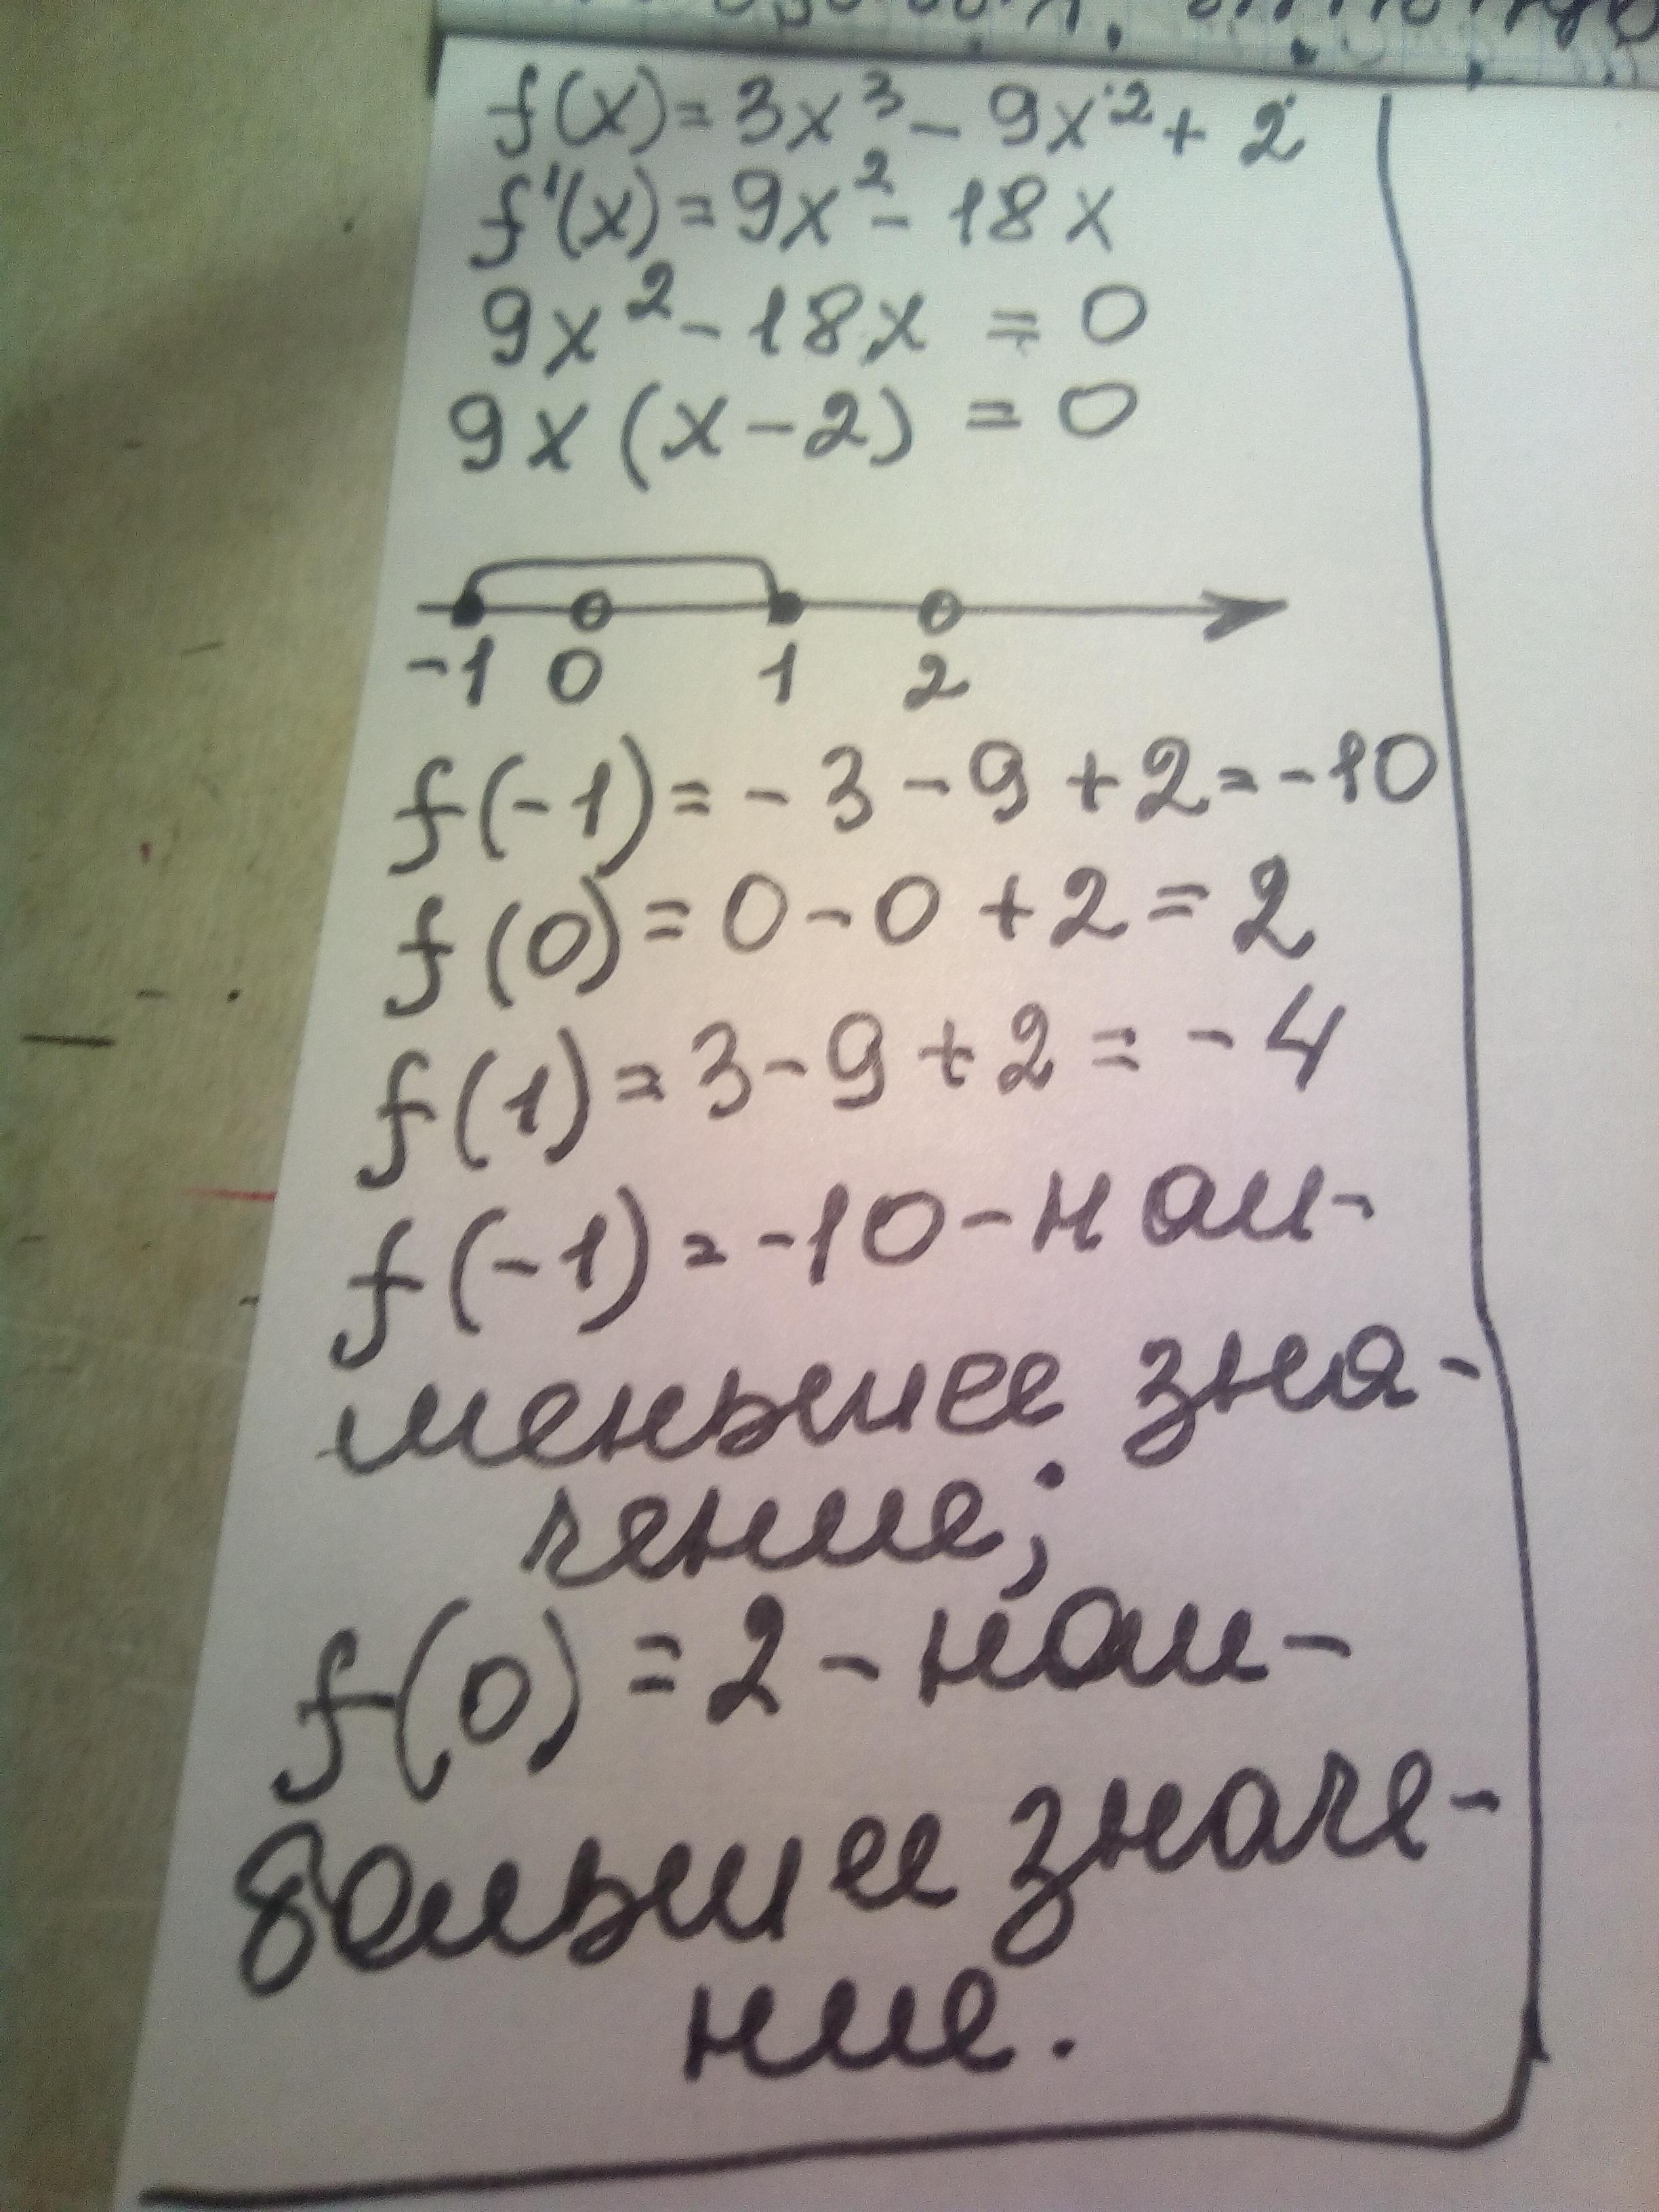 f(x) = 3x³ - 9x² + 2
f'(x) = 9x² - 18x
9x² - 18x = 0
9x(x-2) = 0
-1 0 1 2
f(-1) = -3-9+2 = -10
f(0) = 0-0+2 = 2
f(1) = 3-9+2 = -4
f(-1) = -10 - наи-
меньшее зна-
чение;
f(0) = 2 - наи-
большее значе-
ние.